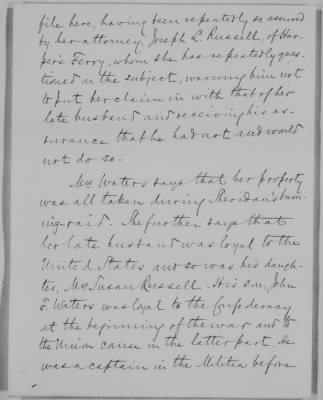 file here, having been repeatedly so assured
by her attorney, Joseph L. Russell, of Har-
per's Ferry, whom she has repeatedly ques-
tioned on the subject, warning him not
to put her claim in with that of her
late husband and receiving his as-
surance that he had not and would
not do so.
Mrs Waters says that her property
was all taken during Sheridan's burn-
ing-raid. She further says that
her late husband was loyal to the
United States and so was his daugh-
ter, Mrs Susan Russell. His son, John
F. Waters was loyal to the Confederacy
at the beginning of the war and to
the Union cause in the latter part. He
was a captain in the Militia before